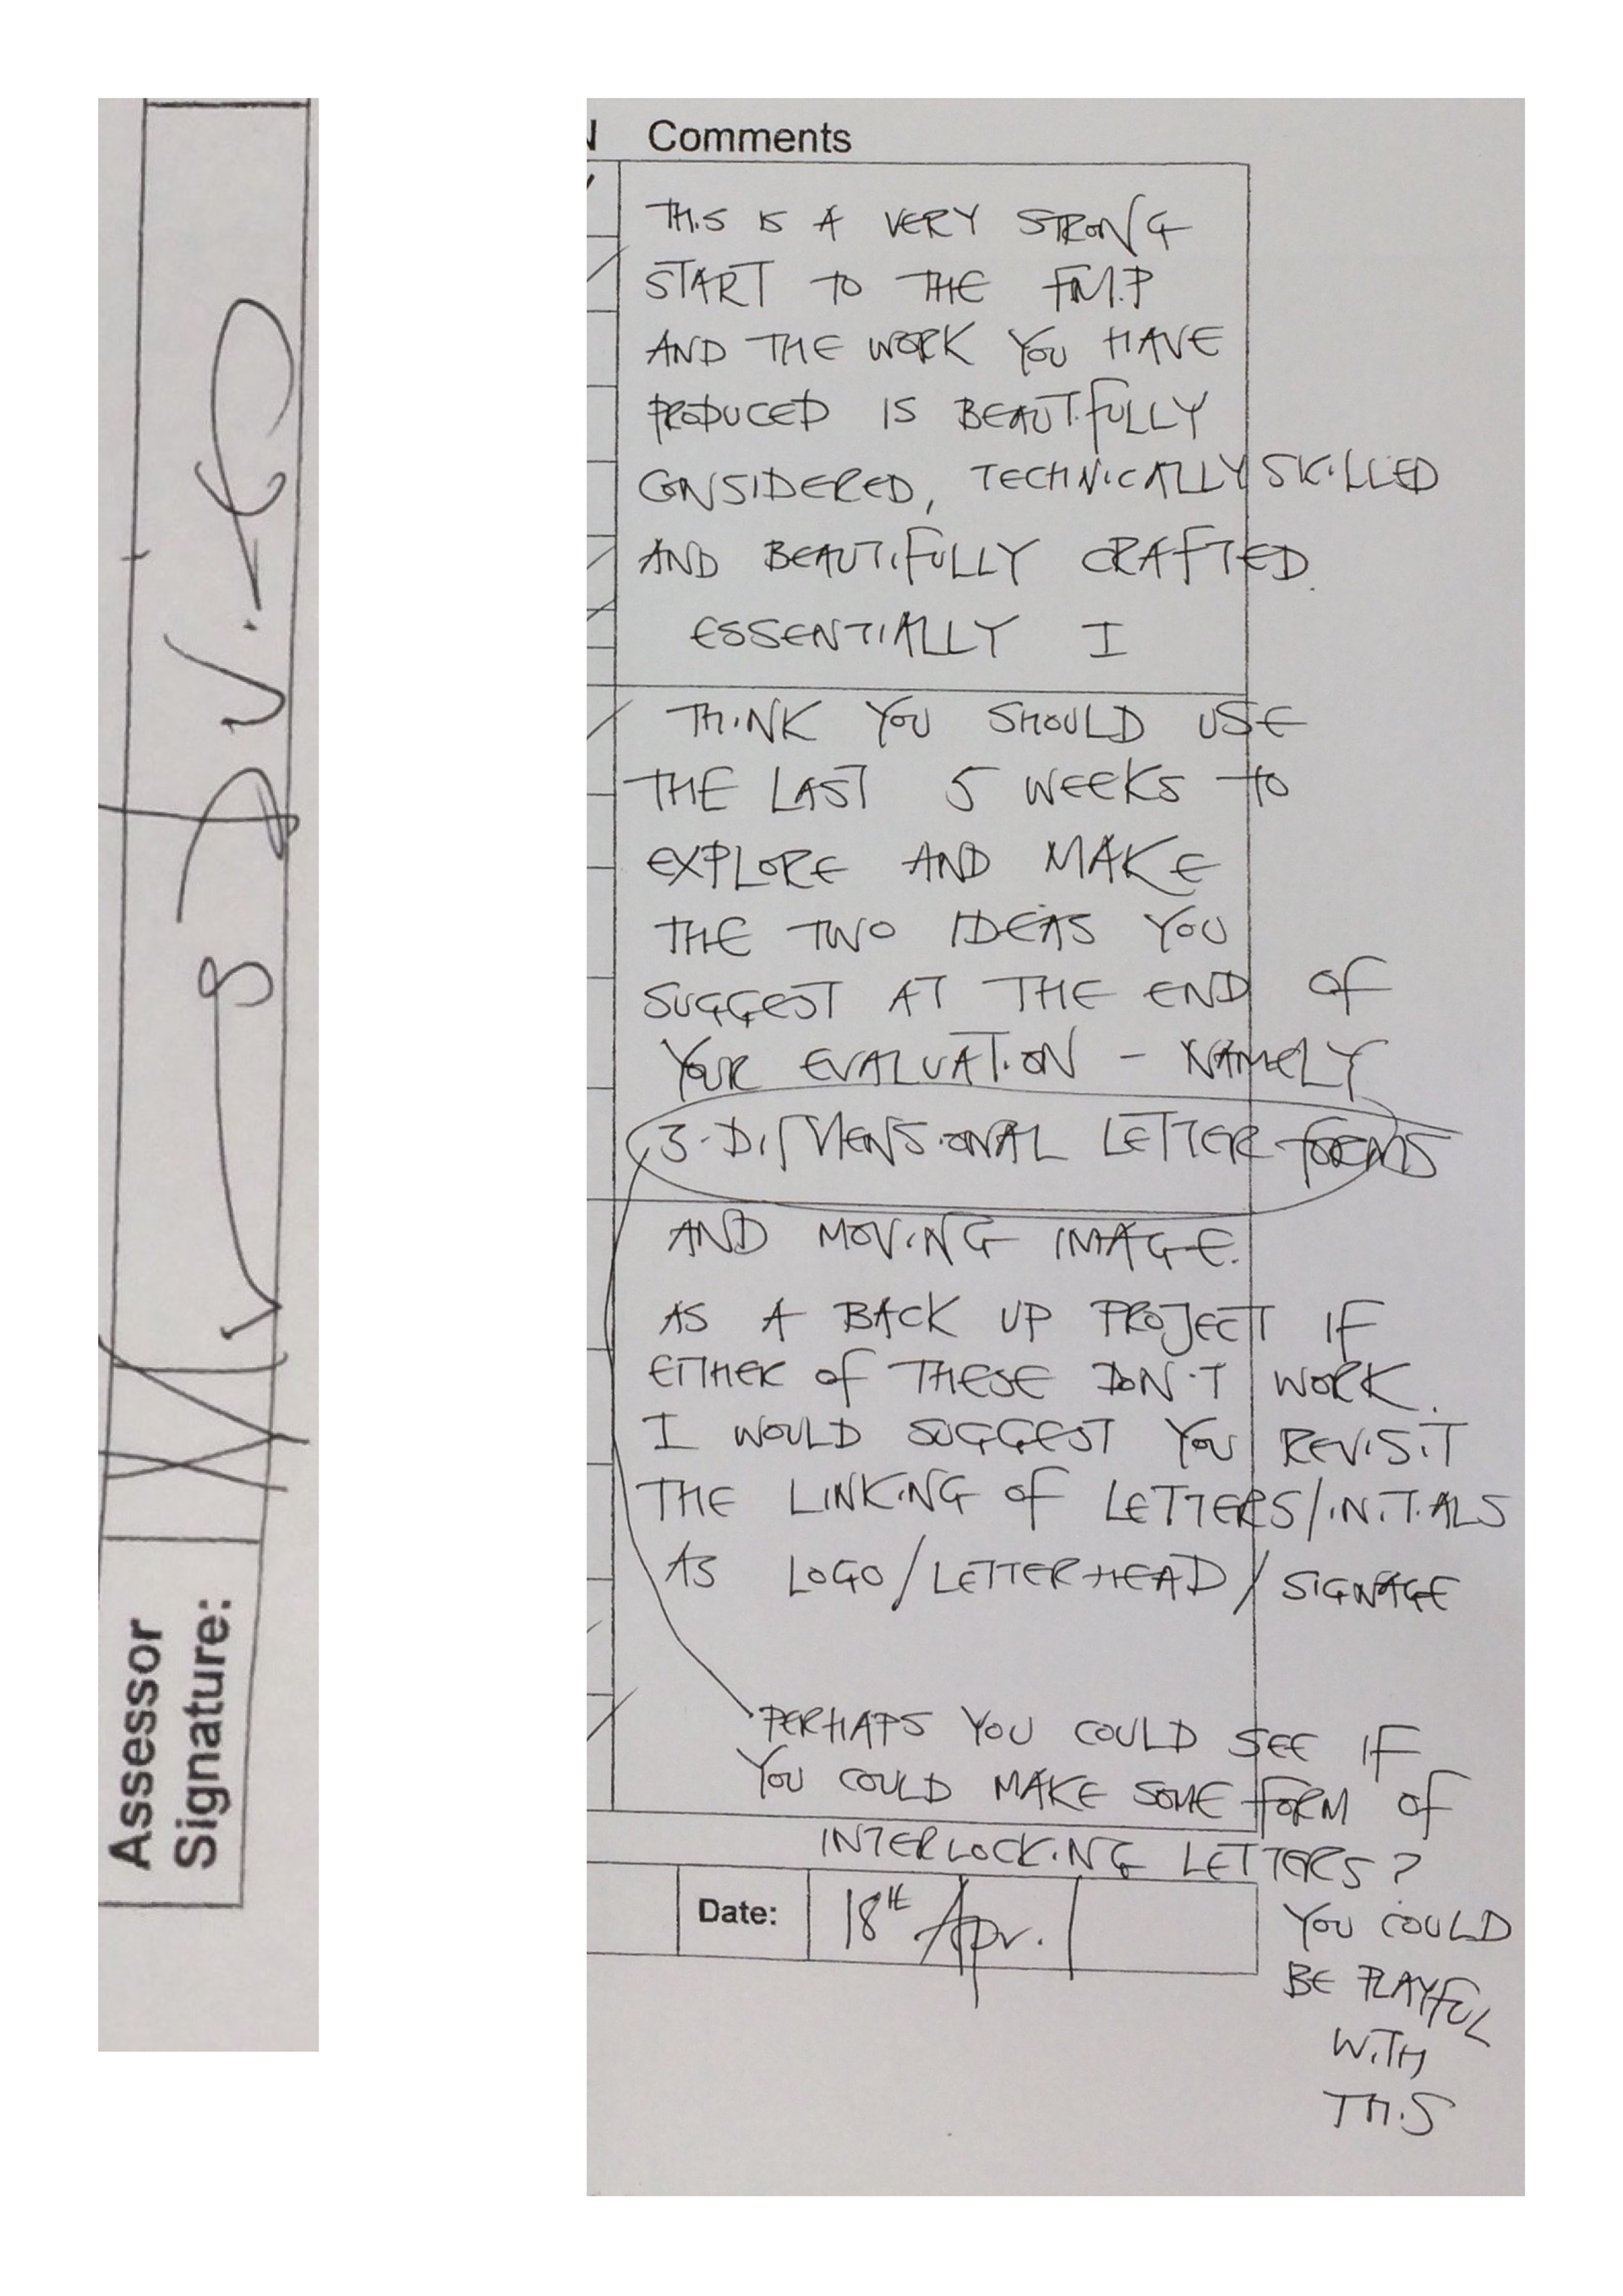 Assessor
Signature:
Comments
THIS IS A VERY STRONG
START TO THE FMP
AND THE WORK YOU HAVE
PRODUCED IS BEAUTIFULLY
CONSIDERED, TECHNICALLY SKILLED
AND BEAUTIFULLY CRAFTED.
ESSENTIALLY I
THINK YOU SHOULD USE
THE LAST 5 WEEKS TO
EXPLORE AND MAKE
THE TWO IDEAS YOU
SUGGEST AT THE END OF
YOUR EVALUATION - NAMELY
3-DIMENSIONAL LETTER FORMS
AND MOVING IMAGE.
AS A BACK UP PROJECT IF
EITHER OF THESE DON'T WORK.
I WOULD SUGGEST YOU REVISIT
THE LINKING OF LETTERS/INITIALS
AS LOGO/LETTERHEAD/SIGNAGE
PERHAPS YOU COULD SEE IF
YOU COULD MAKE SOME FORM OF
INTERLOCKING LETTERS?
YOU COULD
BE PLAYFUL
WITH
THIS
Date: 18TH Apr.